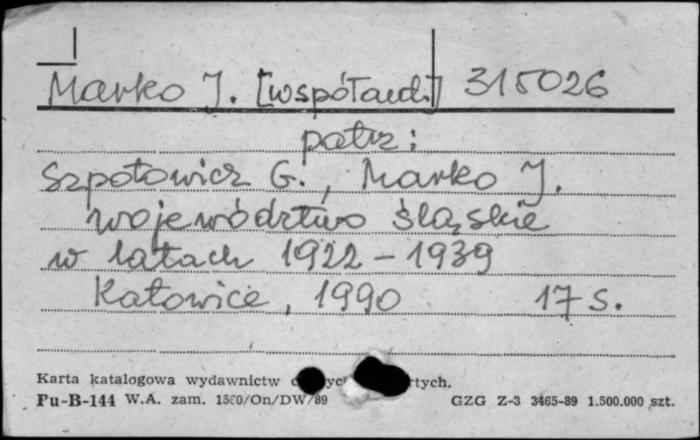 Marko J. [współaut.] 315026
patrz:
Szpotowicz G., Marko J.
Województwo śląskie
w latach 1922 - 1939
Katowice, 1990 17 s.
Karta katalogowa wydawnictw
Pu-B-144 W.A. zam. 1580/On/DW/89 GZG Z-3 3465-89 1.500.000 szt.